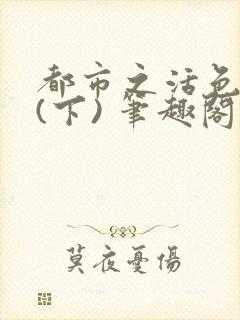 都市之活色
(下) 筆趣閣
莫夜憂傷